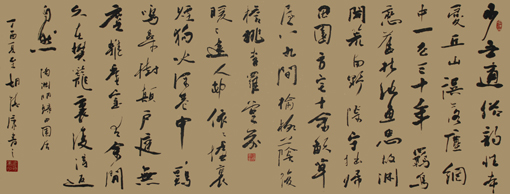 少無適俗韻性本
愛丘山誤落塵網
中一去三十年羈鳥
戀舊林池魚思故淵
開荒南野際守拙歸
園田方宅十餘畝草
屋八九間榆柳蔭後
檐桃李羅堂前
曖曖遠人村依依墟里
煙狗吠深巷中雞
鳴桑樹顛戶庭無
塵雜虛室有餘閒
久在樊籠裏復得返
自然
陶淵明歸田園居
丁酉夏